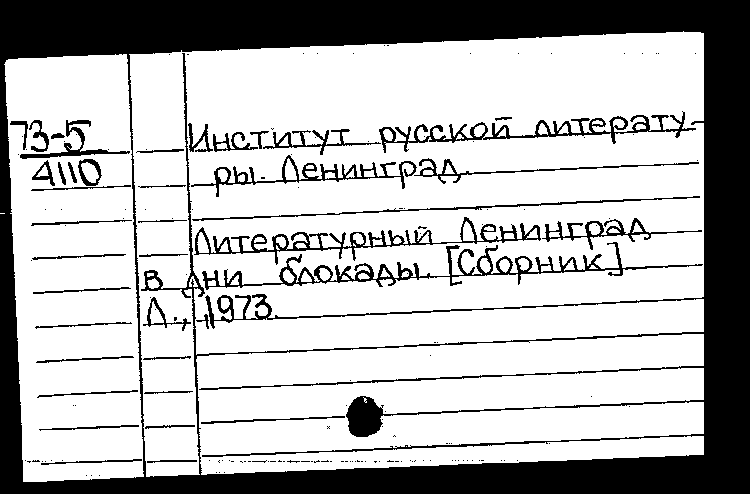 73-5
4110
Институт русской литерату-
ры. Ленинград.
Литературный Ленинград
в дни блокады. [Сборник].
Л., 1973.